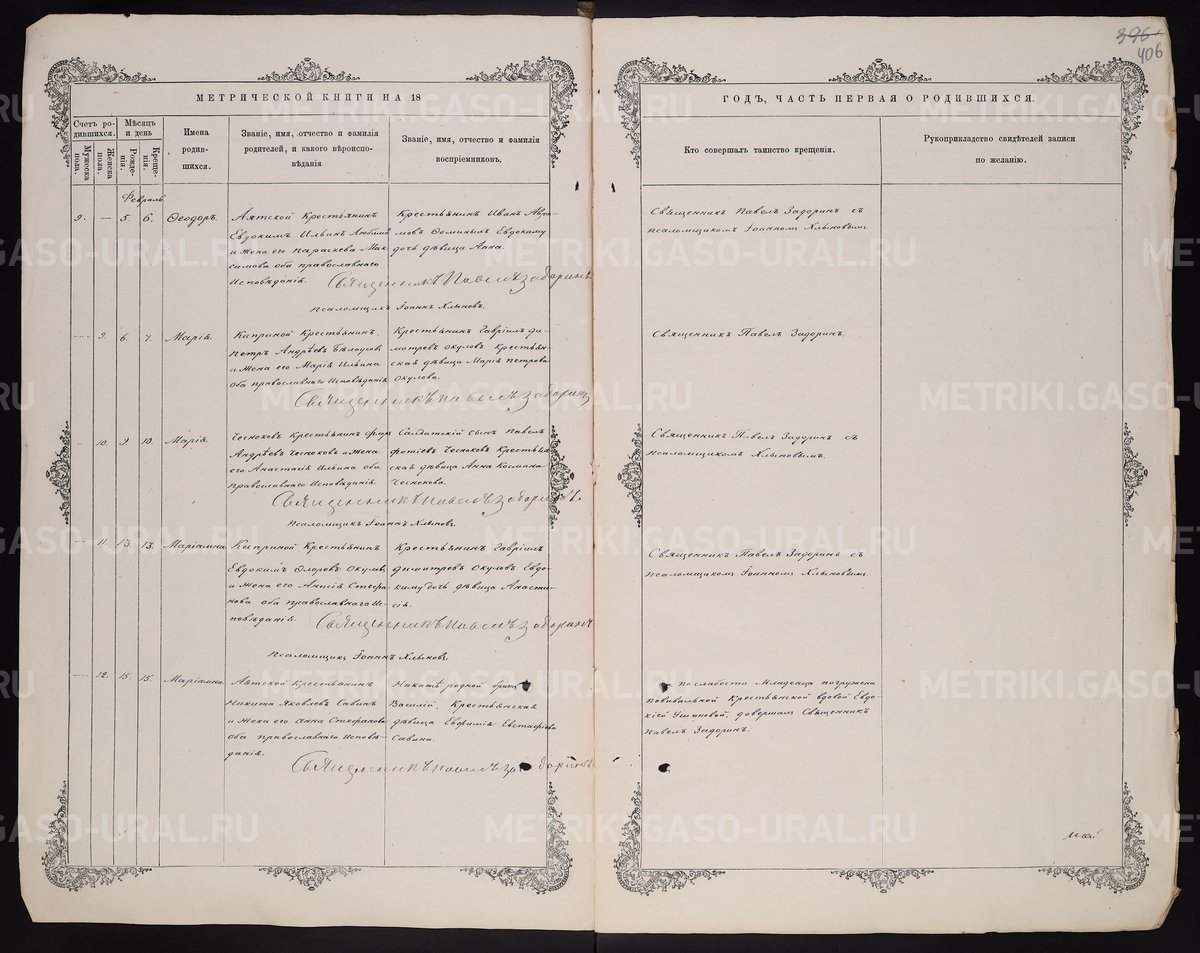 396
406
МЕТРИЧЕСКОЙ КНИГИ НА 18
ГОДЪ, ЧАСТЬ ПЕРВАЯ О РОДИВШИХСЯ.
Счетъ родившихся.
Мужеска пола.
Женска пола.
Мѣсяцъ и день
Рожденія.
Крещенія.
Имена родившихся.
Званіе, имя, отчество и фамилія
родителей, и какого вѣроиспо-
вѣданія
Званіе, имя, отчество и фамилія
воспріемниковъ.
Кто совершалъ таинство крещенія.
Рукоприкладство свидѣтелей записи
по желанію.
Февраль
9. — 5. 6. Ѳеодоръ.
Аятской Крестьянинъ
Евдокимъ Ильинъ
и жена его Параскева Мак-
симова оба православнаго
Исповѣданія.
Крестьянинъ Иванъ Авра-
мовъ Ѳоминыхъ Евдокиму
дочь дѣвица Анна.
Священникъ Павелъ Задоринъ съ
псаломщикомъ Іоанномъ Хлыновымъ.
Священникъ Павелъ Задоринъ
Псаломщикъ Іоаннъ Хлыновъ.
— 9. 6. 7. Марія.
Киприной Крестьянинъ
Петръ Андрѣевъ Бѣлоусовъ
и жена его Марія Ильина
оба православнаго Исповѣданія
Крестьянинъ Гавріилъ Ди-
митревъ Окуловъ Крестьян-
ская дѣвица Марія Петрова
Окулова.
Священникъ Павелъ Задоринъ.
Священникъ Павелъ Задоринъ
— 10. 9. 10. Марія.
Чесноковъ Крестьянинъ
Андрѣевъ Чесноковъ и жена
его Анастасія Ильина оба
православнаго Исповѣданія.
Солдатскій сынъ Павелъ
Фотіевъ Чесноковъ Крестьян
ская дѣвица Анна Космина
Чеснокова.
Священникъ Павелъ Задоринъ съ
псаломщикомъ Хлыновымъ.
Священникъ Павелъ Задоринъ.
Псаломщикъ Іоаннъ Хлыновъ.
— 11. 13. 13. Маріамна.
Киприной Крестьянинъ
Евдокимъ Флоровъ Окуловъ
и жена его Анисія Стефа-
нова оба православнаго Ис-
повѣданія.
Крестьянинъ Гавріилъ
Димитревъ Окуловъ Евдо-
киму дочь дѣвица Анаста-
сія.
Священникъ Павелъ Задоринъ съ
псаломщикомъ Іоанномъ Хлыновымъ.
Священникъ Павелъ Задоринъ
Псаломщикъ Іоаннъ Хлыновъ.
— 12. 15. 15. Маріамна.
Аятской Крестьянинъ
Никита Яковлевъ Савинъ
и жена его Анна Стефанова
оба православнаго Исповѣ-
данія.
Никитѣ родной братъ
Василій, Крестьянская
дѣвица Евфимія Евстафіева
Савина.
По слабости Младенца погружена
повивальной Крестьянской вдовой Евдо-
кіей Ушаковой; довершалъ Священникъ
Павелъ Задоринъ.
Священникъ Павелъ Задоринъ
METRIKI.GASO-URAL.RU